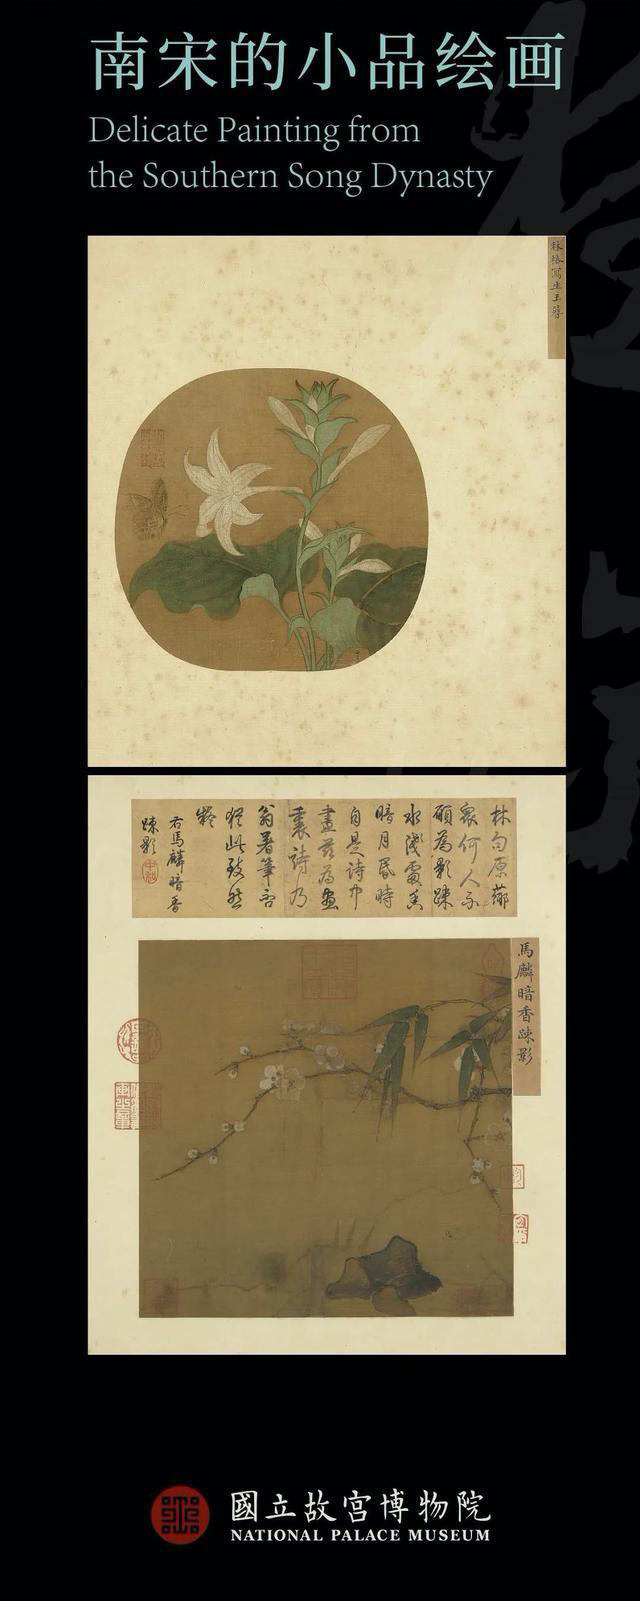 南宋的小品绘画
Delicate Painting from
the Southern Song Dynasty
林椿寫生玉簪
林白原
眾何人不
願為影踈
水淺處香
暗月昏時
自是詩中
畫茲為畫
裏詩乃
翁著筆否
猶此致然
右馬麟暗香
踈影
馬麟暗香踈影
國立故宮博物院
NATIONAL PALACE MUSEUM